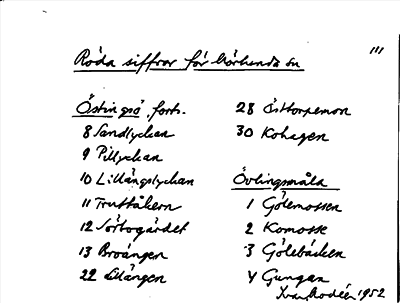 111
Röda siffror för Mörlunda sn
Östingsö, forts.
8 Sandlyckan
9 Pillyckan
10 Lillängslyckan
11 Truttåkern
12 Sörbogärdet
13 Broängen
22 Lillängen
28 Östtorpemon
30 Kohagen
Övlingsmåla
1 Gölemossen
2 Komosse
3 Gölebäcken
4 Gungan
Ivar Modéer 1952